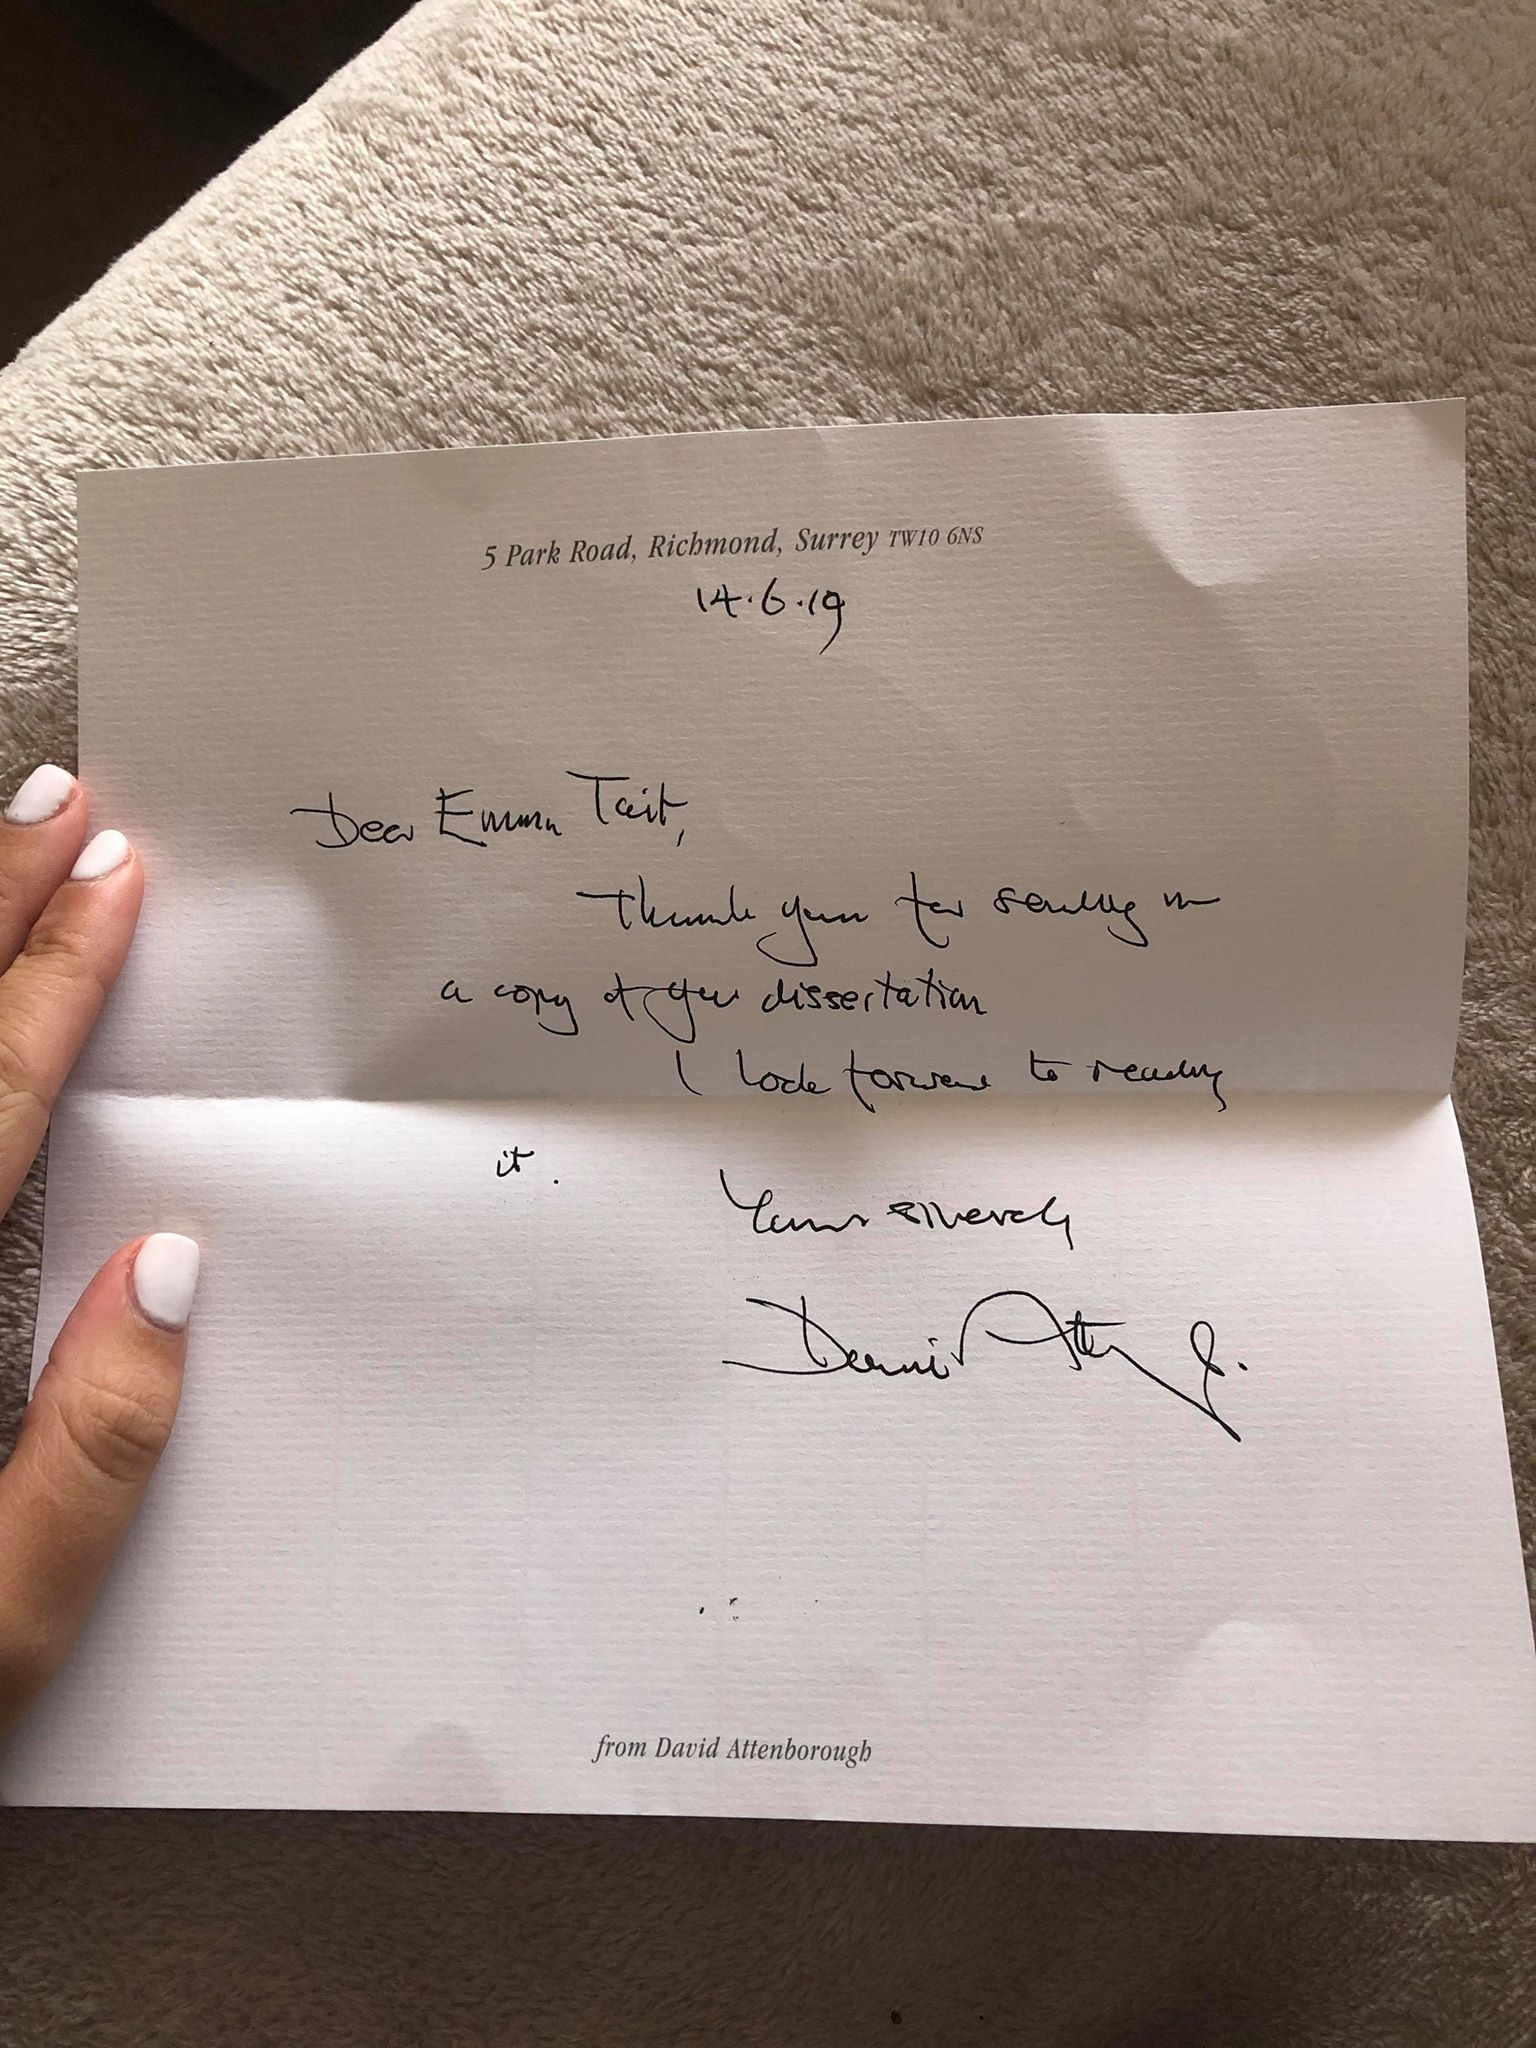 5 Park Road, Richmond, Surrey TW10 6NS
14.6.19
Dear Emma Tait,
Thank you for sending me
a copy of your dissertation
I look forward to reading
it.
Yours sincerely
David Attenborough
from David Attenborough